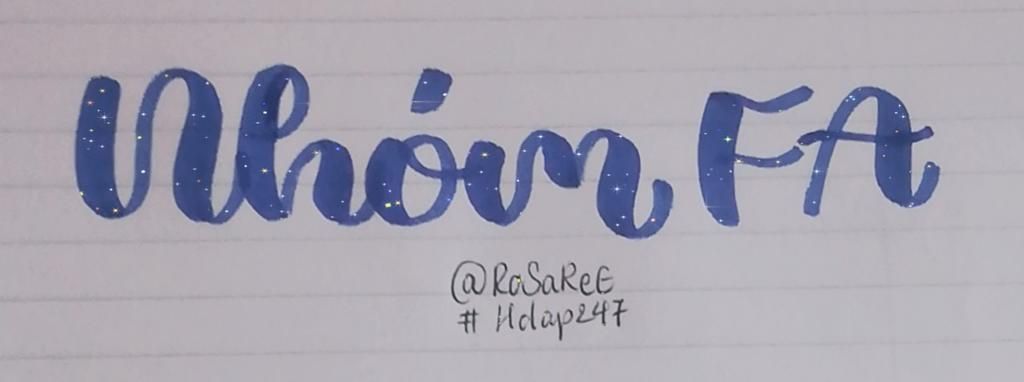 Nhóm FA
@RoSaReE
# Hdap247